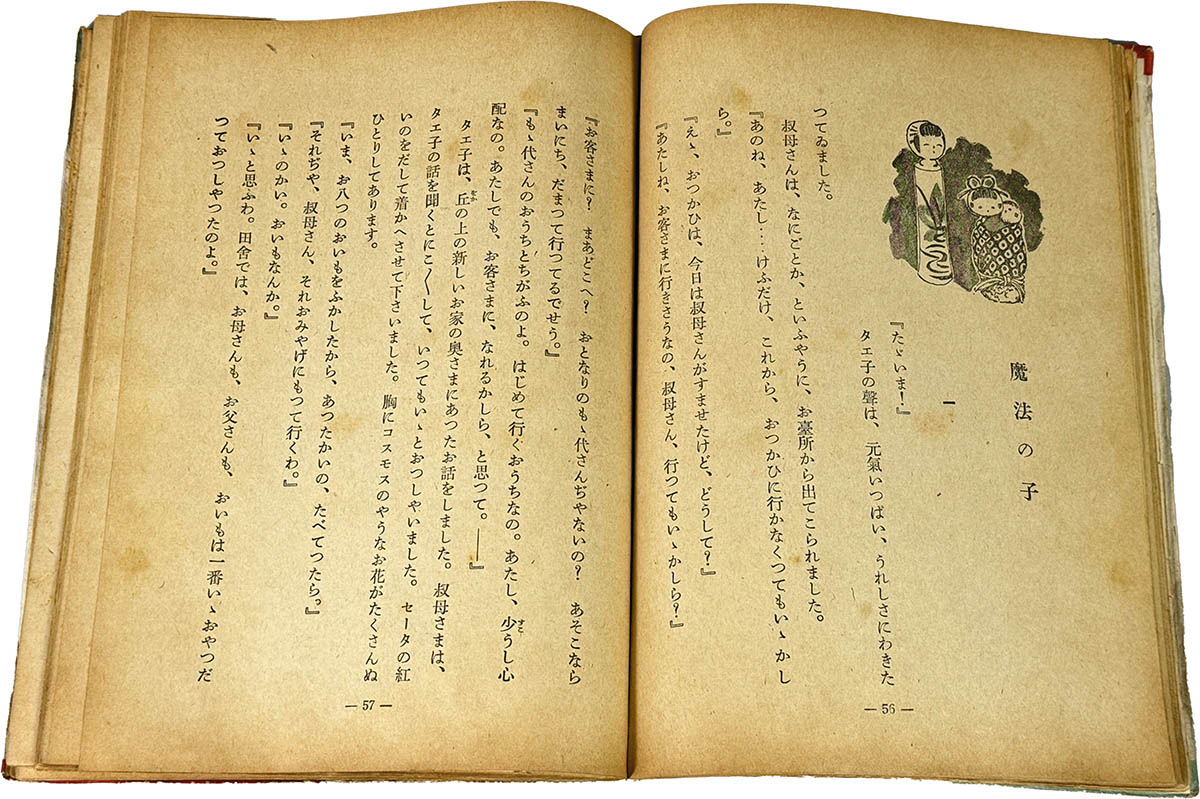 魔法の子
一
『たゞいま！』
タエ子の聲は、元氣いつぱい、うれしさにわきた
つてゐました。
叔母さんは、なにごとか、といふやうに、お臺所から出てこられました。
『あのね、あたし‥‥けふだけ、これから、おつかひに行かなくつてもいゝかし
ら。』
『えゝ、おつかひは、今日は叔母さんがすませたけど、どうして？』
『あたしね、お客さまに行きさうなの、叔母さん、行つてもいゝかしら？』
— 56 —
『お客さまに？　まあどこへ？　おとなりのもゝ代さんぢやないの？　あそこなら
まいにち、だまつて行つてるでせう。』
『もゝ代さんのおうちとちがふのよ。はじめて行くおうちなの。あたし、少うし心
配なの。あたしでも、お客さまに、なれるかしら、と思つて。――』
タエ子は、丘の上の新しいお家の奥さまにあつたお話をしました。叔母さまは、
タエ子の話を聞くとにこ〳〵して、いつてもいゝとおつしやいました。セータの紅
いのをだして着かへさせて下さいました。胸にコスモスのやうなお花がたくさんぬ
ひとりしてあります。
『いま、お八つのおいもをふかしたから、あつたかいの、たべてつたら。』
『それぢや、叔母さん、それおみやげにもつて行くわ。』
『いゝのかい。おいもなんか。』
『いゝと思ふわ。田舎では、お母さんも、お父さんも、おいもは一番いゝおやつだ
つておつしやつたのよ。』
— 57 —